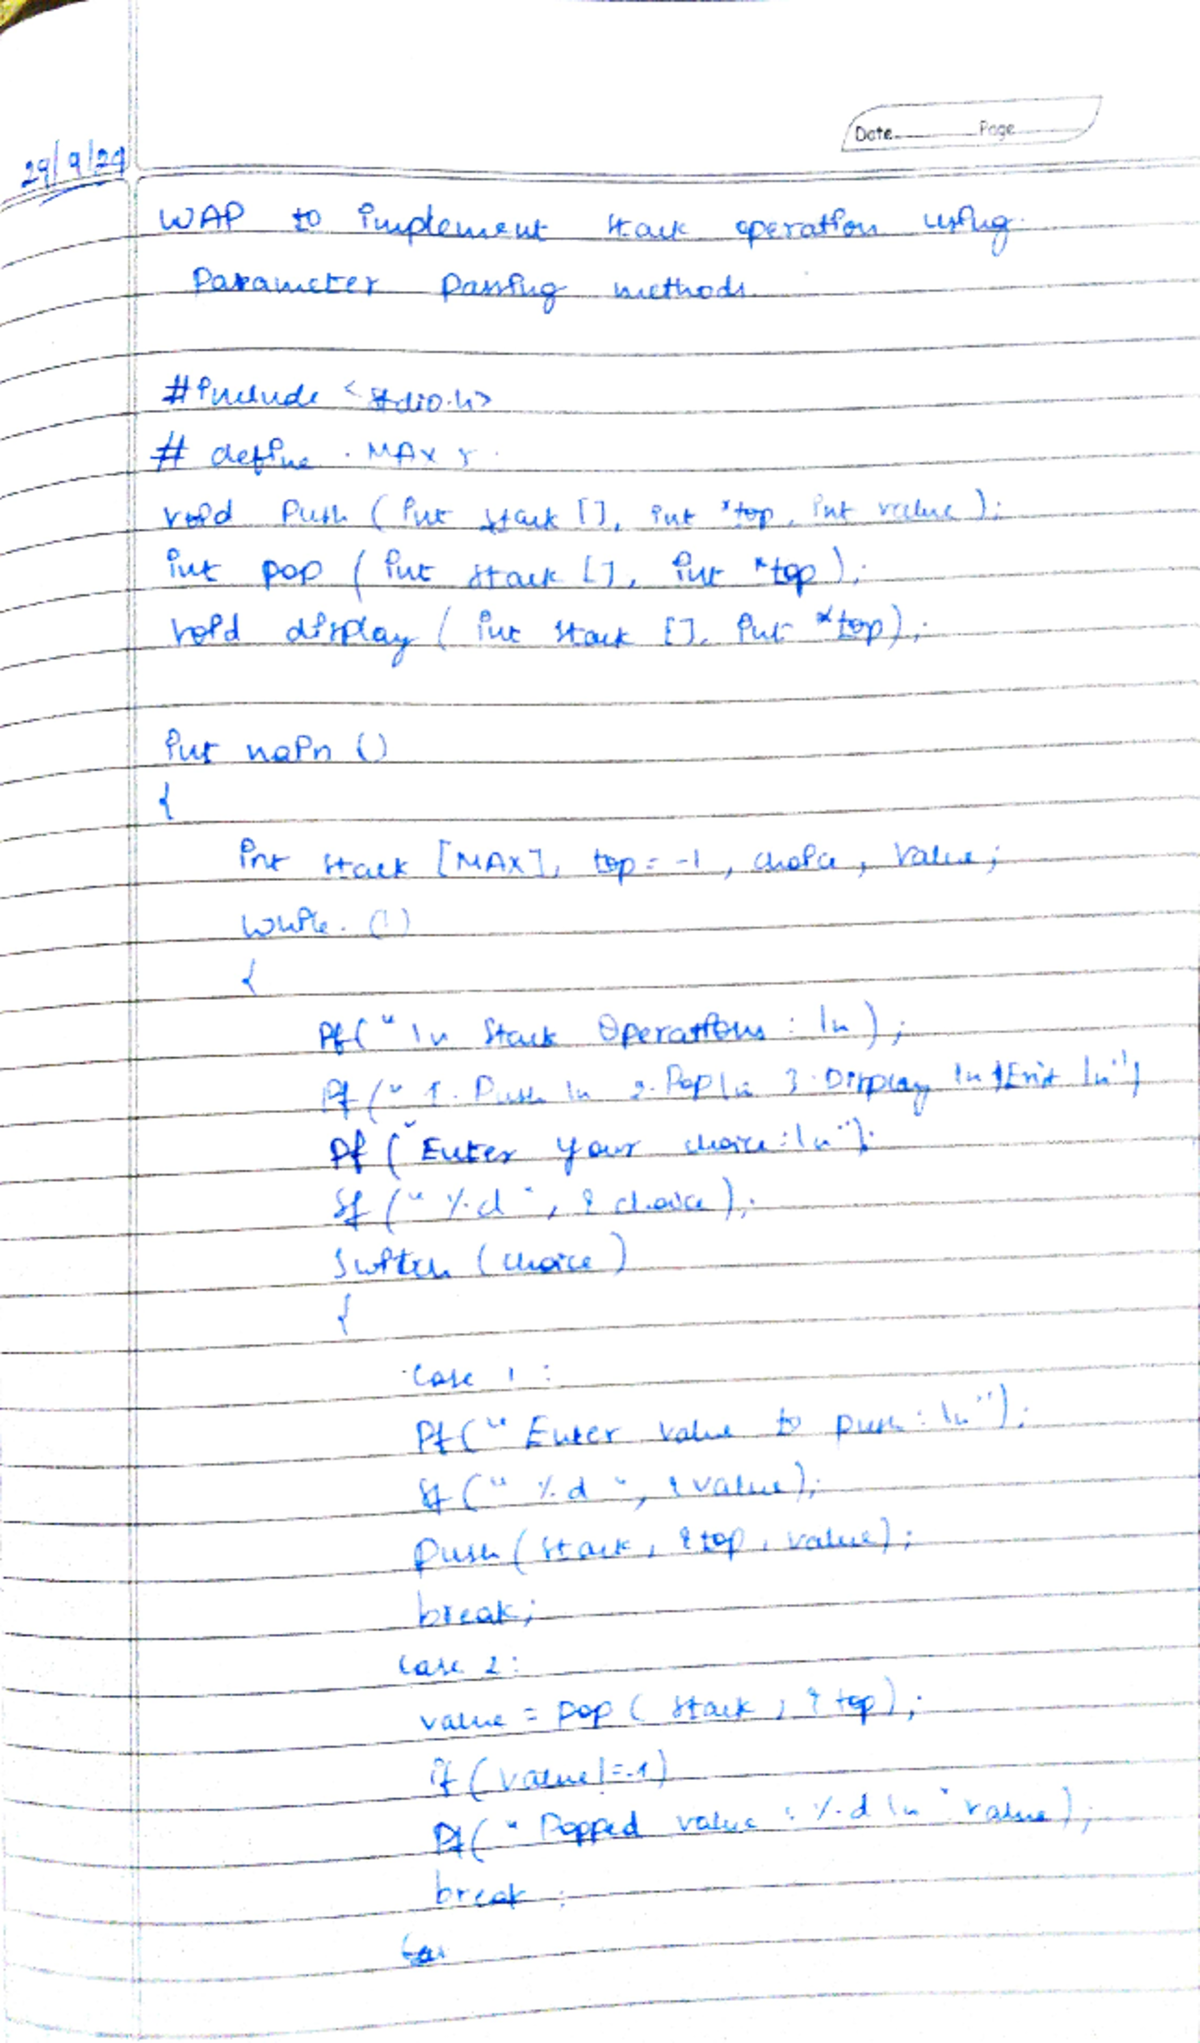 Date Page
29/9/24
WAP to implement stack operation using
Parameter passing methods.
#include <stdio.h>
# define MAX 5
void Push (int stack [], int *top, int value);
int pop (int stack [], int *top);
void display (int stack [], int *top);
int main ()
{
int stack [MAX], top = -1, choice, value;
while (1)
{
Pf(" \n Stack Operations : \n );
Pf (" 1. Push \n 2. Pop \n 3. Display \n 4 Exit \n")
Pf ("Enter your choice: \n");
Sf (" %d ", & choice);
Switch (choice)
{
Case 1 :
Pf (" Enter value to push : \n");
Sf (" %d ", &value);
Push (stack, &top, value);
break;
Case 2 :
value = pop ( stack, & top);
if (value != -1)
Pf (" Popped value : %d \n " value);
break ;